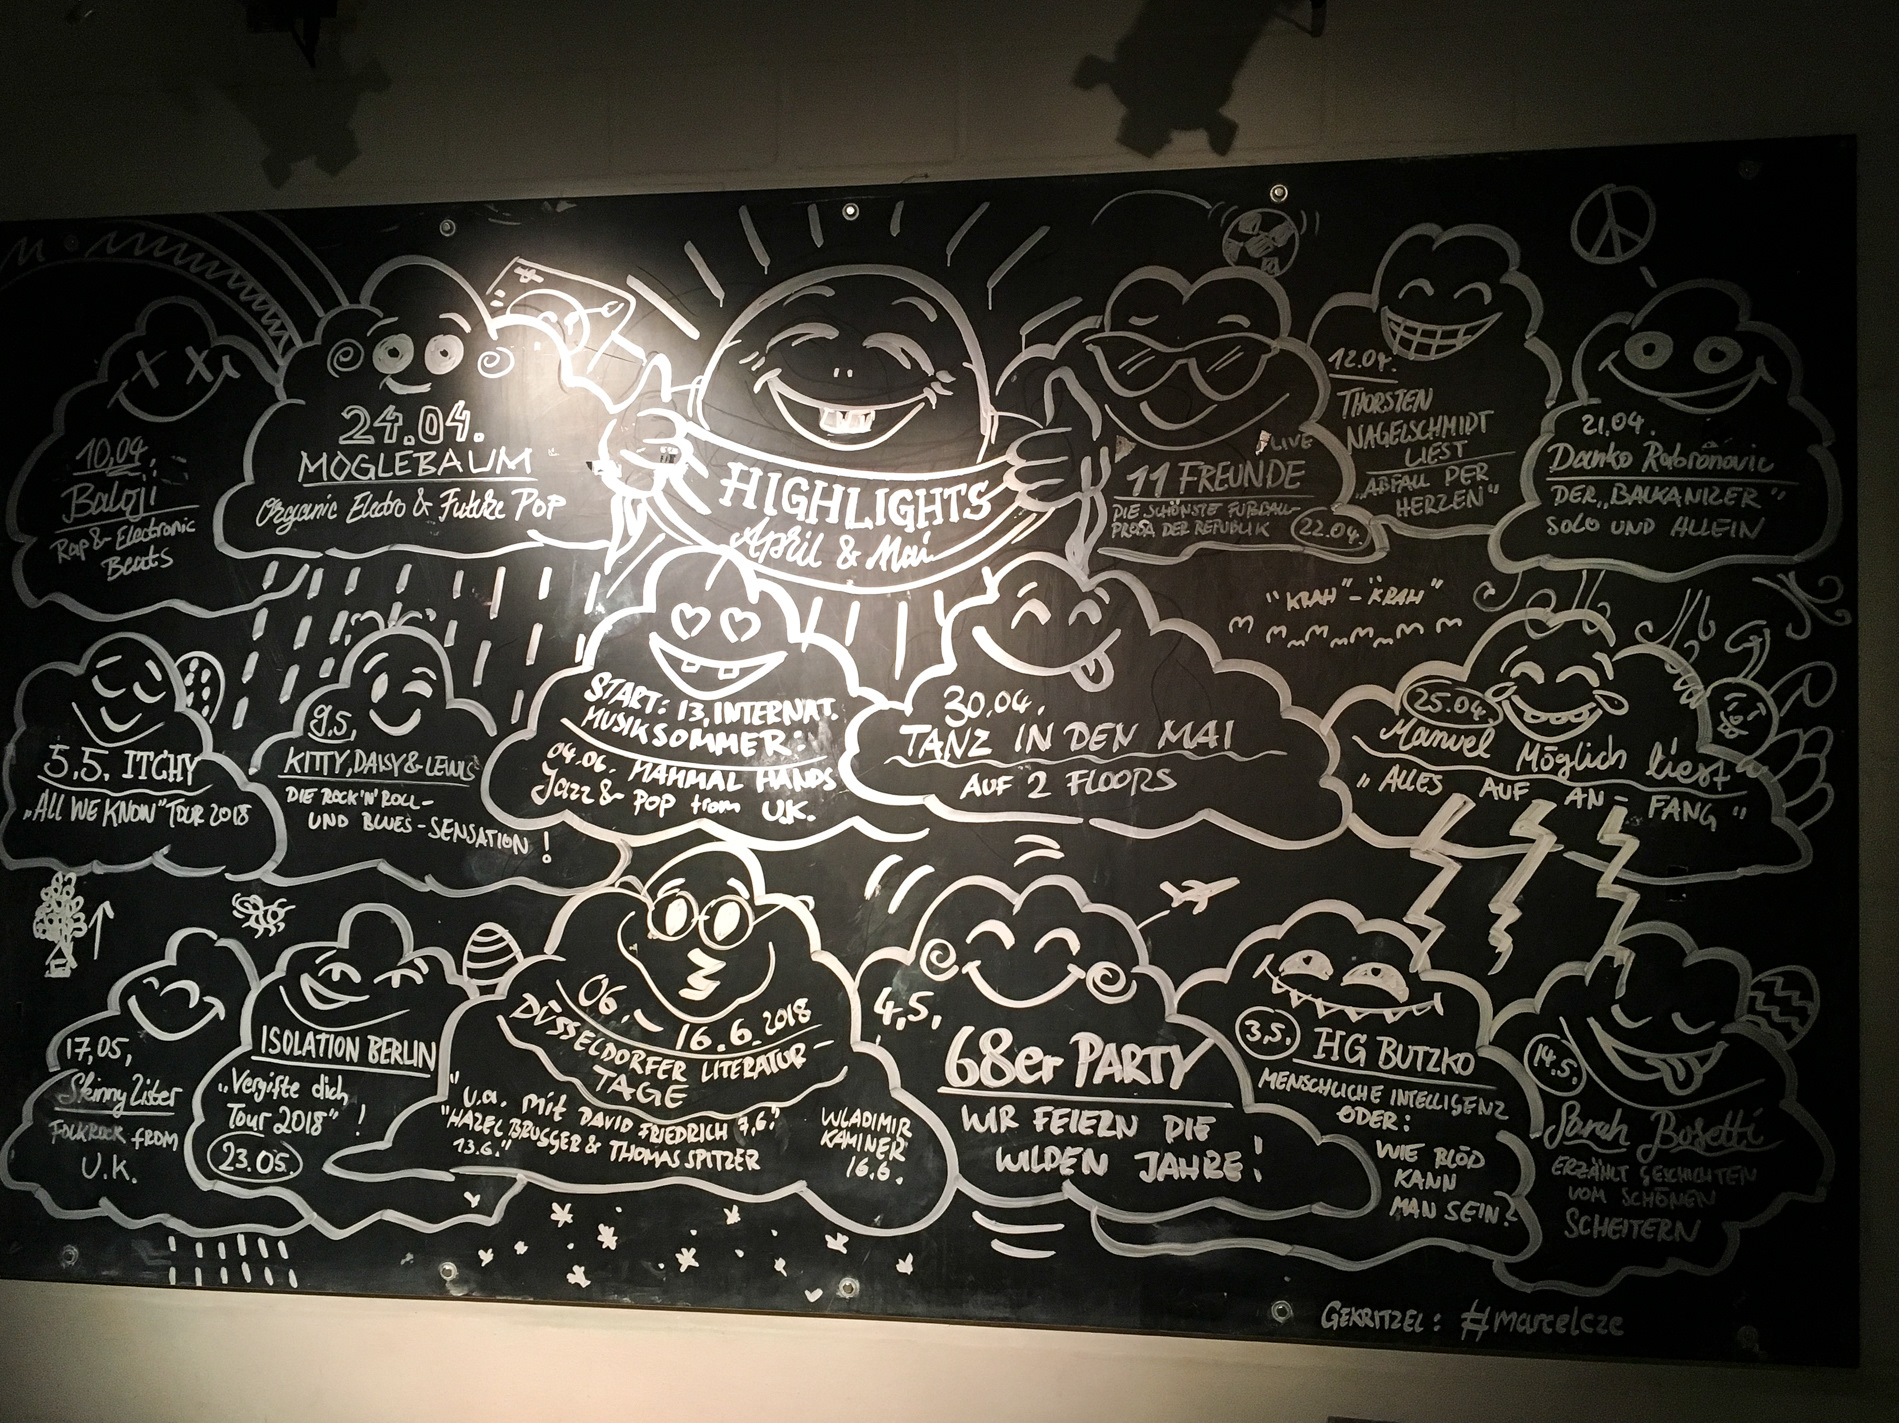 HIGHLIGHTS
April & Mai
10.04
Baloji
Rap & Electronic
Beats
24.04.
MÖGLEBAUM
Organic Electro & Future Pop
LIVE
11 FREUNDE
DIE SCHÖNSTE FUßBALL-
PROSA DER REPUBLIK
22.04.
12.04.
THORSTEN
NAGELSCHMIDT
LIEST
„ABFALL DER
HERZEN"
21.04.
Danko Rabrenovic
DER „BALKANIZER"
SOLO UND ALLEIN
"KRAH"-"KRAH"
5.5. ITCHY
„ALL WE KNOW" TOUR 2018
9.5.
KITTY, DAISY & LEWIS
DIE ROCK'N'ROLL-
UND BLUES-SENSATION!
START: 13. INTERNAT.
MUSIKSOMMER:
04.06. MAMMAL HANDS
Jazz & Pop from U.K.
30.04.
TANZ IN DEN MAI
AUF 2 FLOORS
25.04.
Manuel Möglich liest
„ALLES AUF AN-FANG"
17.05.
Skinny Lister
FOLKROCK FROM
U.K.
ISOLATION BERLIN
„Vergifte dich
Tour 2018" !
23.05.
06.-16.6.2018
DÜSSELDORFER LITERATUR-
TAGE
"u.a. mit DAVID FRIEDRICH 7.6.
"HAZEL BRUGGER & THOMAS SPITZER
13.6."
WLADIMIR
KAMINER
16.6.
4.5.
68er PARTY
WIR FEIERN DIE
WILDEN JAHRE!
3.5. HG BUTZKO
MENSCHLICHE INTELLIGENZ
ODER:
WIE BLÖD
KANN
MAN SEIN?
14.5.
Sarah Bosetti
ERZÄHLT GESCHICHTEN
VOM SCHÖNEN
SCHEITERN
GEKRITZEL: #marcelcze